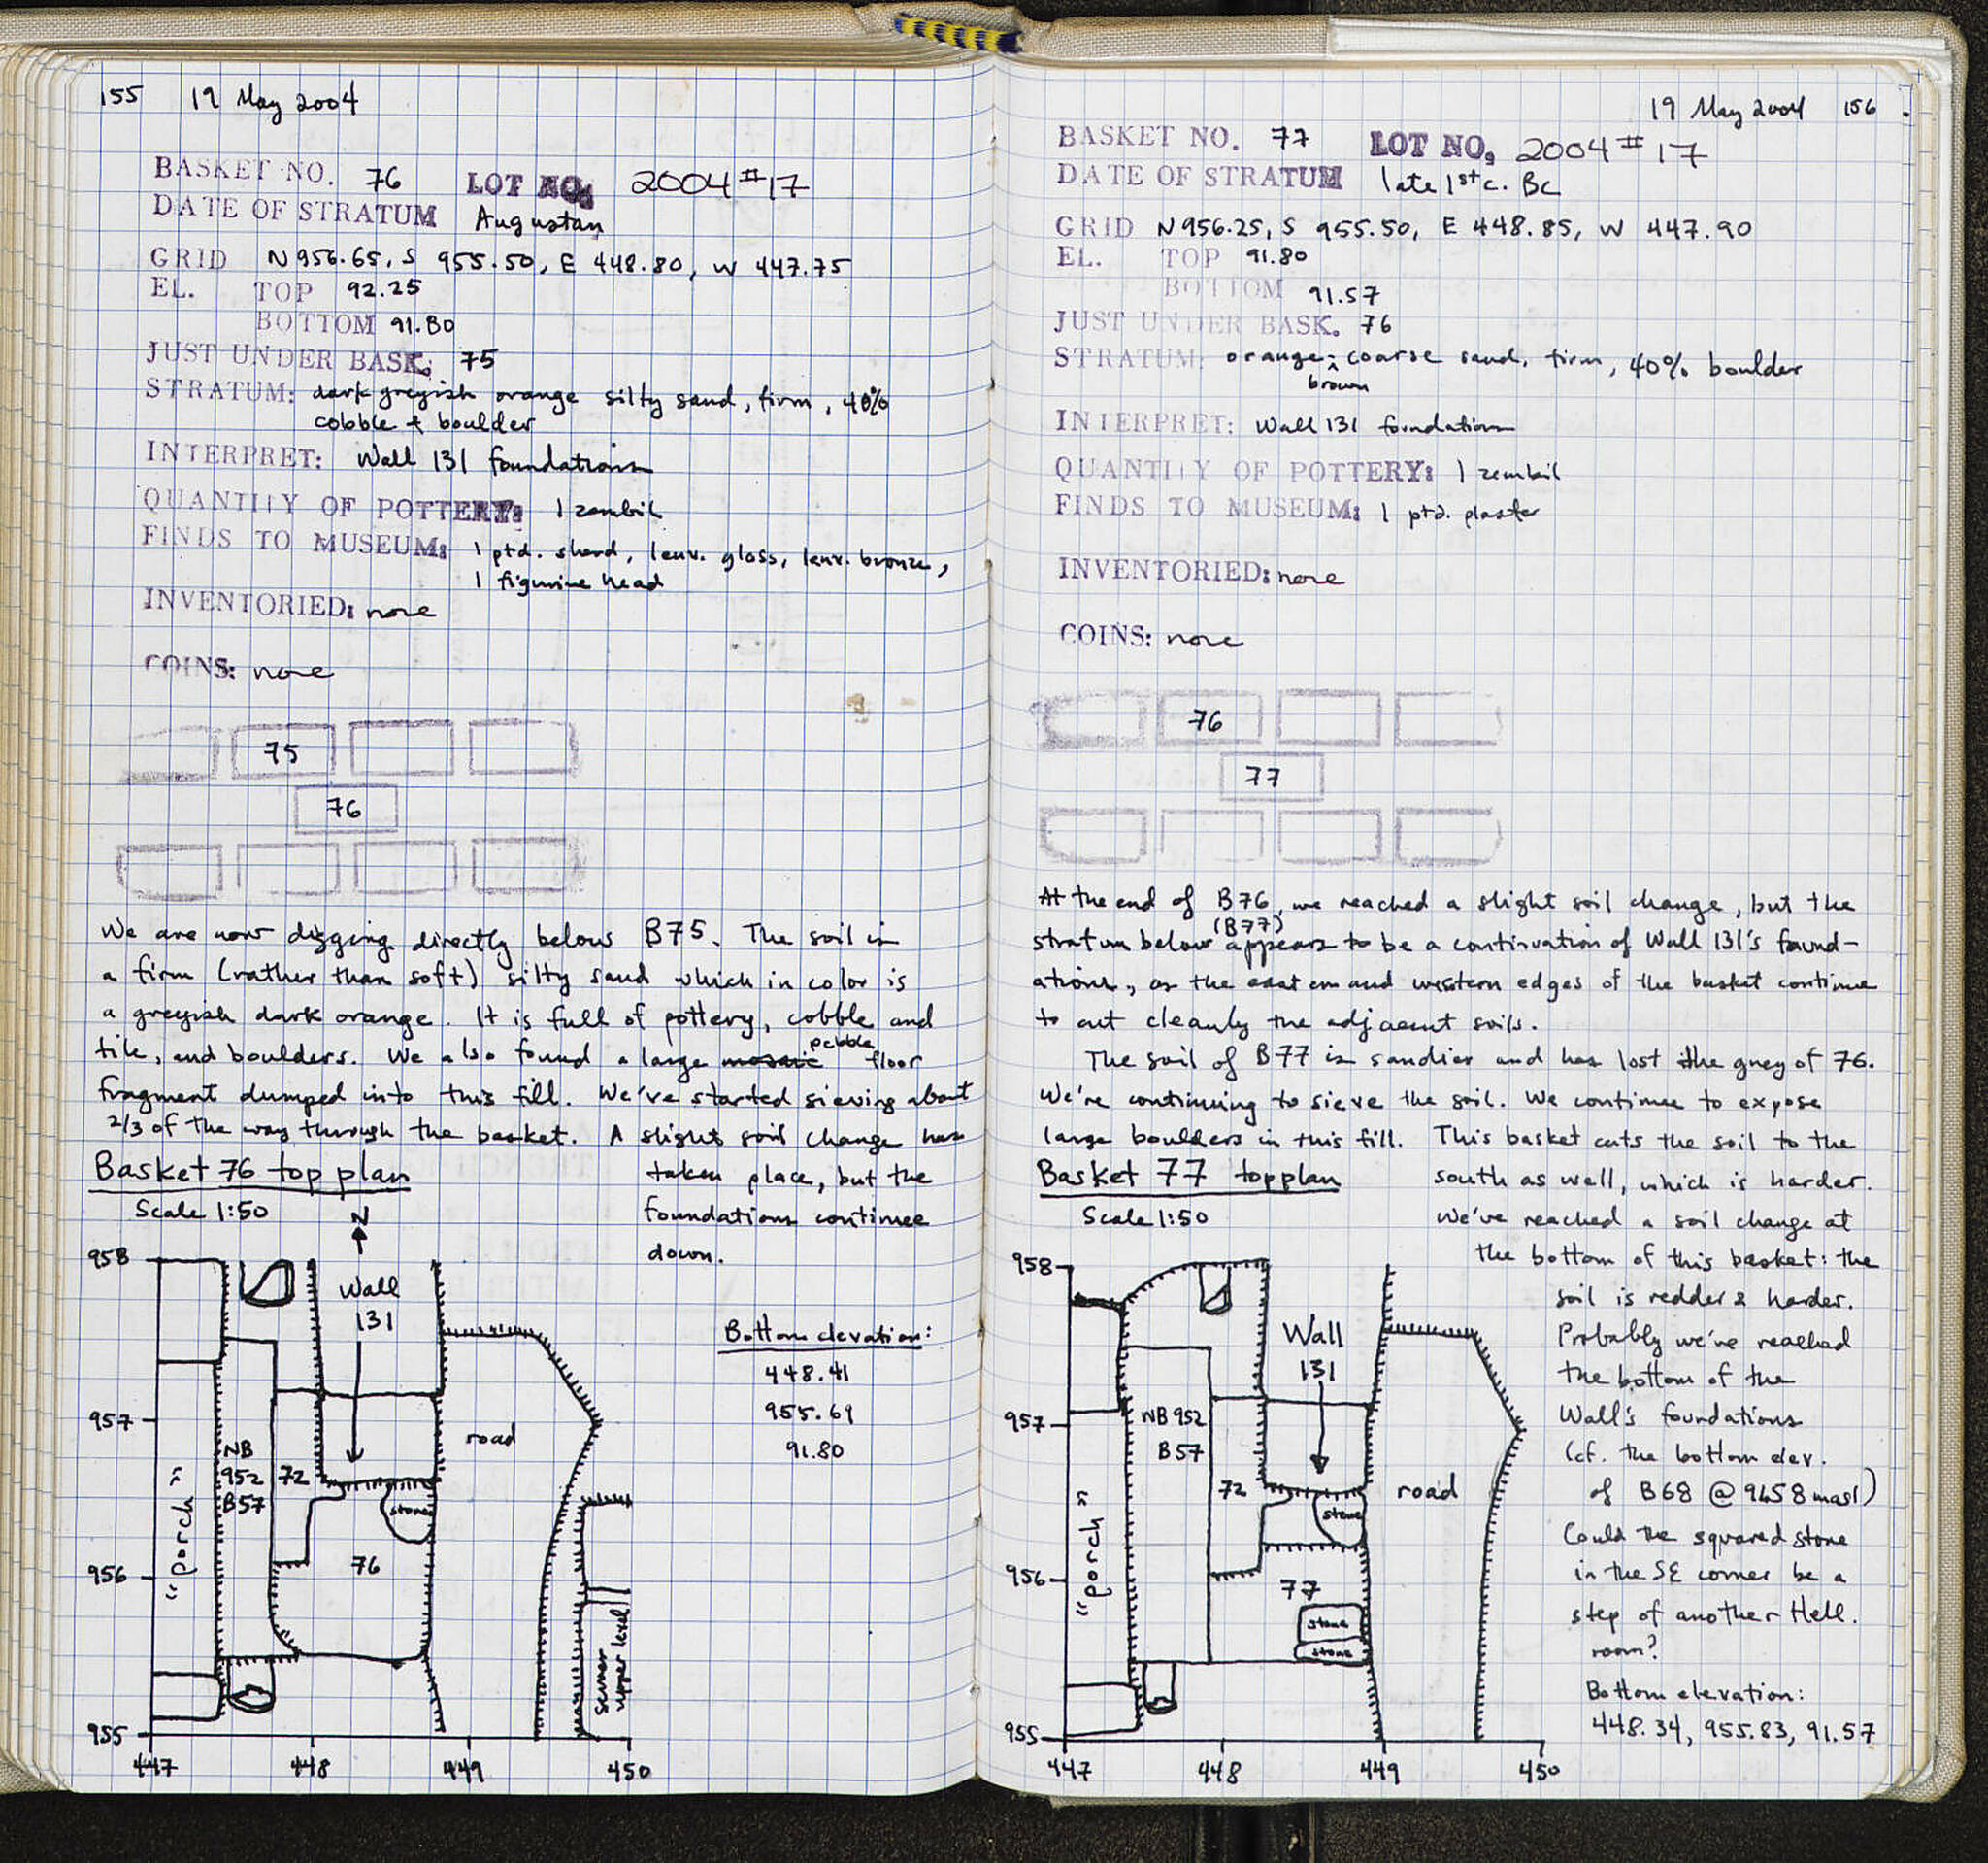 155 19 May 2004
BASKET NO. 76 LOT NO. 2004 #17
DATE OF STRATUM Augustan
GRID N 956.65, S 955.50, E 448.80, W 447.75
EL. TOP 92.25
BOTTOM 91.80
JUST UNDER BASK. 75
STRATUM: dark greyish orange silty sand, firm, 40%
cobble + boulder
INTERPRET: Wall 131 foundations
QUANTITY OF POTTERY: 1 zembil
FINDS TO MUSEUM: 1 ptd. sherd, 1 env. glass, 1 env. bronze,
1 figurine head
INVENTORIED: none
COINS: none
75
76
We are now digging directly below B75. The soil is
a firm (rather than soft) silty sand which in color is
a greyish dark orange. It is full of pottery, cobble and
tile, and boulders. We also found a large mosaic pebble floor
fragment dumped into this fill. We've started sieving about
2/3 of the way through the basket. A slight soil change has
taken place, but the
foundations continue
down.
Basket 76 top plan
Scale 1:50
N
958
957
956
955
447 448 449 450
Wall
131
road
"porch"
NB
952
B57
72
stone
76
sewer
upper level
Bottom elevation:
448.41
955.69
91.80
19 May 2004 156
BASKET NO. 77 LOT NO. 2004 #17
DATE OF STRATUM late 1st c. BC
GRID N 956.25, S 955.50, E 448.85, W 447.90
EL. TOP 91.80
BOTTOM 91.57
JUST UNDER BASK. 76
STRATUM: orange-brown coarse sand, firm, 40% boulder
INTERPRET: Wall 131 foundations
QUANTITY OF POTTERY: 1 zembil
FINDS TO MUSEUM: 1 ptd. plaster
INVENTORIED: none
COINS: none
76
77
At the end of B76, we reached a slight soil change, but the
stratum below (B77) appears to be a continuation of Wall 131's found-
ations, as the eastern and western edges of the basket continue
to cut cleanly the adjacent soils.
The soil of B77 is sandier and has lost the grey of 76.
We're continuing to sieve the soil. We continue to expose
large boulders in this fill. This basket cuts the soil to the
south as well, which is harder.
We've reached a soil change at
the bottom of this basket: the
soil is redder & harder.
Probably we've reached
the bottom of the
Wall's foundations
(cf. the bottom elev.
of B68 @ 9658 masl)
Could the squared stone
in the SE corner be a
step of another Hell.
room?
Bottom elevation:
448.34, 955.83, 91.57
Basket 77 top plan
Scale 1:50
958
957
956
955
447 448 449 450
Wall
131
NB 952
B57
72
stone
road
"porch"
77
stone
stone